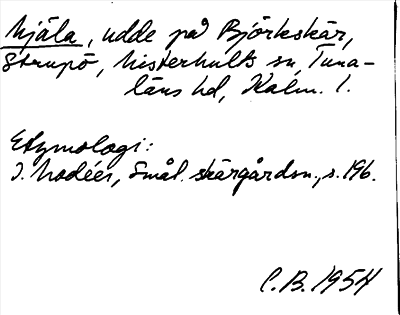 Mjäla, udde på Björkskär,
Strupö, Misterhults sn, Tuna-
läns hd, Kalm. l.
Etymologi:
I. Modéer, Smål. skärgårdsn., s. 196.
C.B. 1954